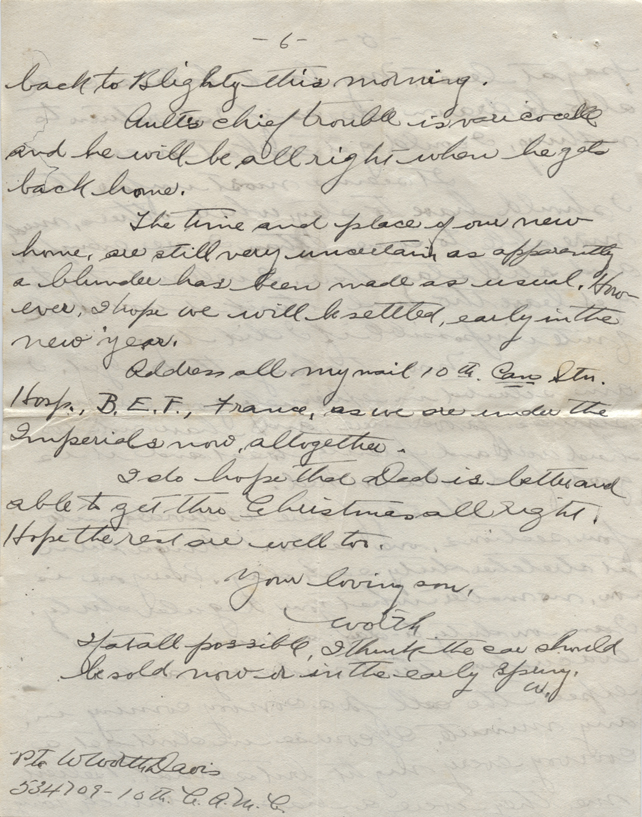 -6-
back to Blighty this morning.
Ault's chief trouble is varicocele
and he will be all right when he gets
back home.
The time and place of our new
home, are still very uncertain as apparently
a blunder has been made as usual. How-
ever, I hope we will be settled, early in the
new year.
Address all my mail 10th. Can Stn.
Hosp., B.E.F., France, as we are under the
Imperials now, altogether.
I do hope that Dad is better and
able to get thro Christmas all right.
Hope the rest are well too.
Your loving son,
Worth
If at all possible, I think the car should
be sold now or in the early spring.
W.
Pte W Worth Davis
534709-10th. C.A.M.C.